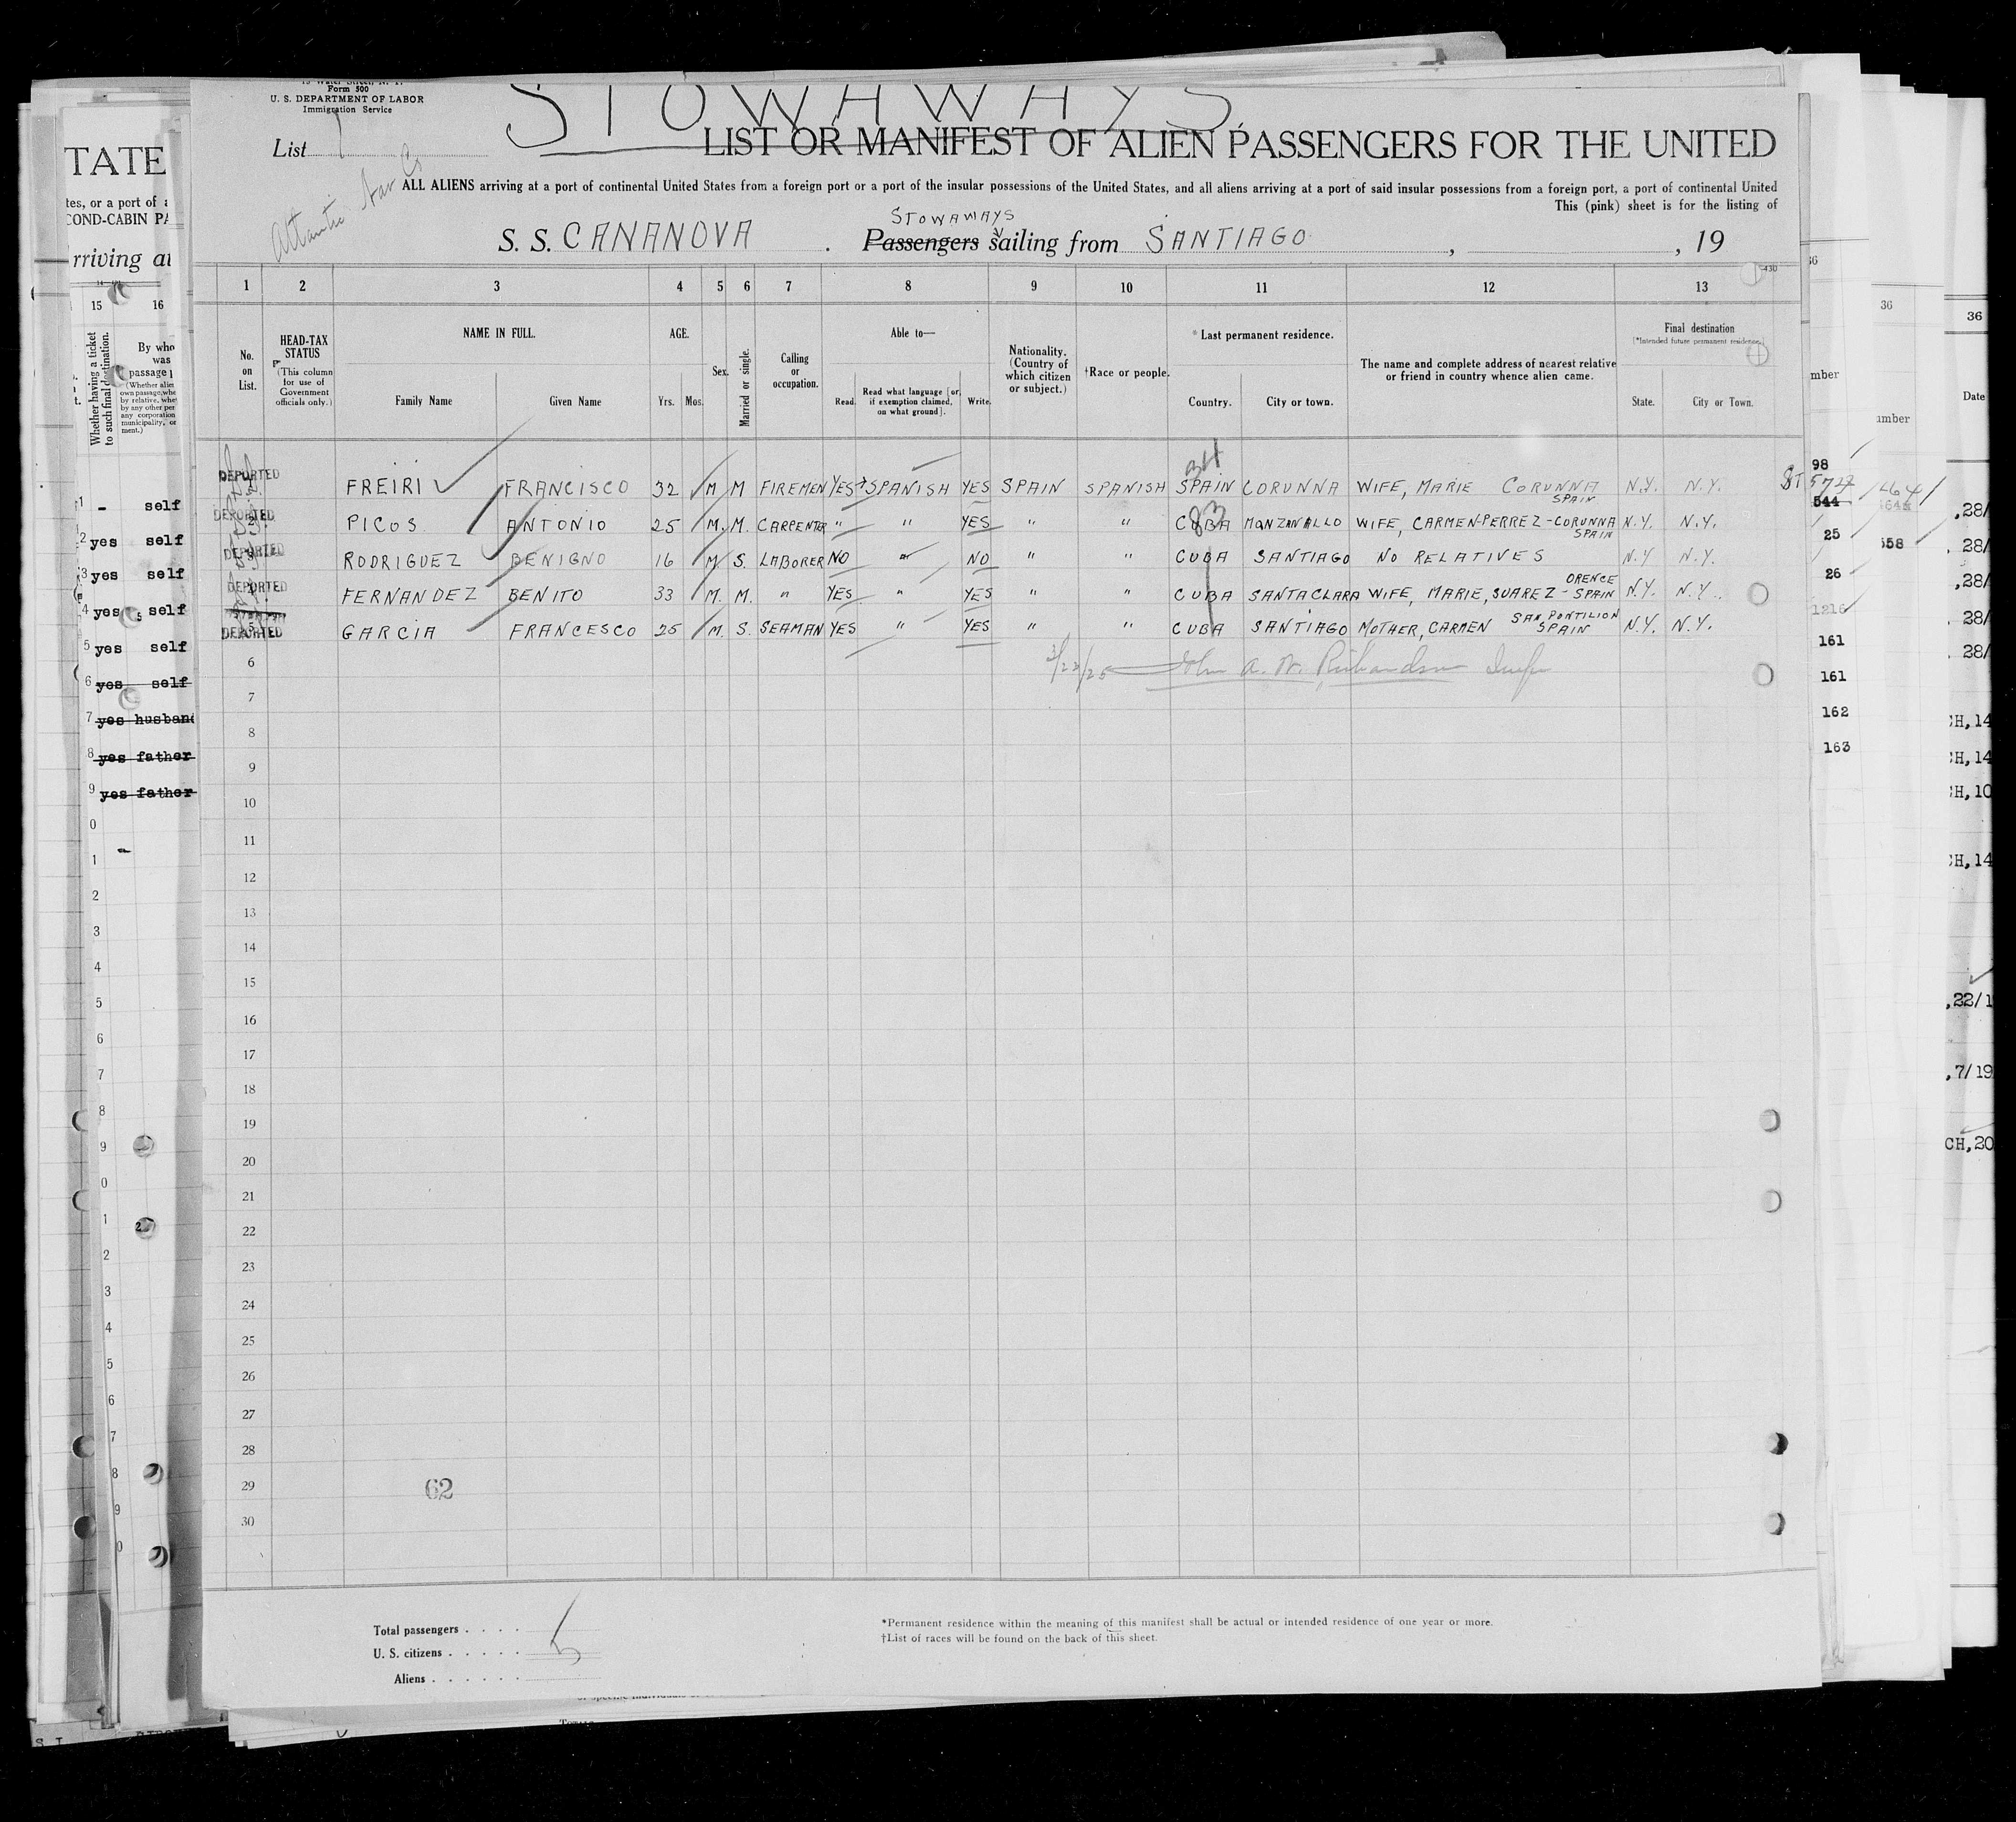 Form 500
U. S. DEPARTMENT OF LABOR
Immigration Service
STOWAWAYS
List 1
LIST OR MANIFEST OF ALIEN PASSENGERS FOR THE UNITED
ALL ALIENS arriving at a port of continental United States from a foreign port or a port of the insular possessions of the United States, and all aliens arriving at a port of said insular possessions from a foreign port, a port of continental United
This (pink) sheet is for the listing of
Atlantic Nav Co
STOWAWAYS
S. S. CANANOVA . Passengers sailing from SANTIAGO , , 19
1 2 3 4 5 6 7 8 9 10 11 12 13
No. on List.
HEAD-TAX STATUS
(This column for use of Government officials only.)
NAME IN FULL.
Family Name Given Name
AGE.
Yrs. Mos.
Sex.
Married or single.
Calling or occupation.
Able to—
Read. Read what language [or, if exemption claimed, on what ground]. Write.
Nationality. (Country of which citizen or subject.)
†Race or people.
*Last permanent residence.
Country. City or town.
The name and complete address of nearest relative or friend in country whence alien came.
Final destination
(*Intended future permanent residence.)
State. City or Town.
DEPORTED FREIRI FRANCISCO 32 M M FIREMEN YES SPANISH YES SPAIN SPANISH SPAIN CORUNNA WIFE, MARIE CORUNNA SPAIN N.Y. N.Y.
DEPORTED 2 PICOS ANTONIO 25 M. M. CARPENTER " " YES " " CUBA MANZANALLO WIFE, CARMEN-PERREZ-CORUNNA SPAIN N.Y. N.Y.
DEPORTED RODRIGUEZ BENIGNO 16 M S. LABORER NO " NO " " CUBA SANTIAGO NO RELATIVES N.Y N.Y.
DEPORTED FERNANDEZ BENITO 33 M. M. " YES " YES " " CUBA SANTA CLARA WIFE, MARIE, SUAREZ - ORENCE SPAIN N.Y. N.Y.
DEPORTED 5 GARCIA FRANCESCO 25 M. S. SEAMAN YES " YES " " CUBA SANTIAGO MOTHER, CARMEN SAN PONTILION SPAIN N.Y. N.Y.
34
83
John A. W. Richardson Insp
6
7
8
9
10
11
12
13
14
15
16
17
18
19
20
21
22
23
24
25
26
27
28
29
30
62
Total passengers . . . .
U. S. citizens . . . . . 5
Aliens . . . . . .
*Permanent residence within the meaning of this manifest shall be actual or intended residence of one year or more.
†List of races will be found on the back of this sheet.
TATE
COND-CABIN PA
rriving at
15 16
Whether having a ticket to such final destination.
By who
was
passage
- self
yes self
yes self
yes self
yes self
yes self
yes husband
yes father
yes father
98
544
25
26
1216
161
161
162
163
36
36
Date